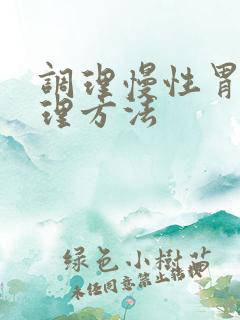 調理慢性胃
理方法
綠色小樹苗
未任同意禁止转授